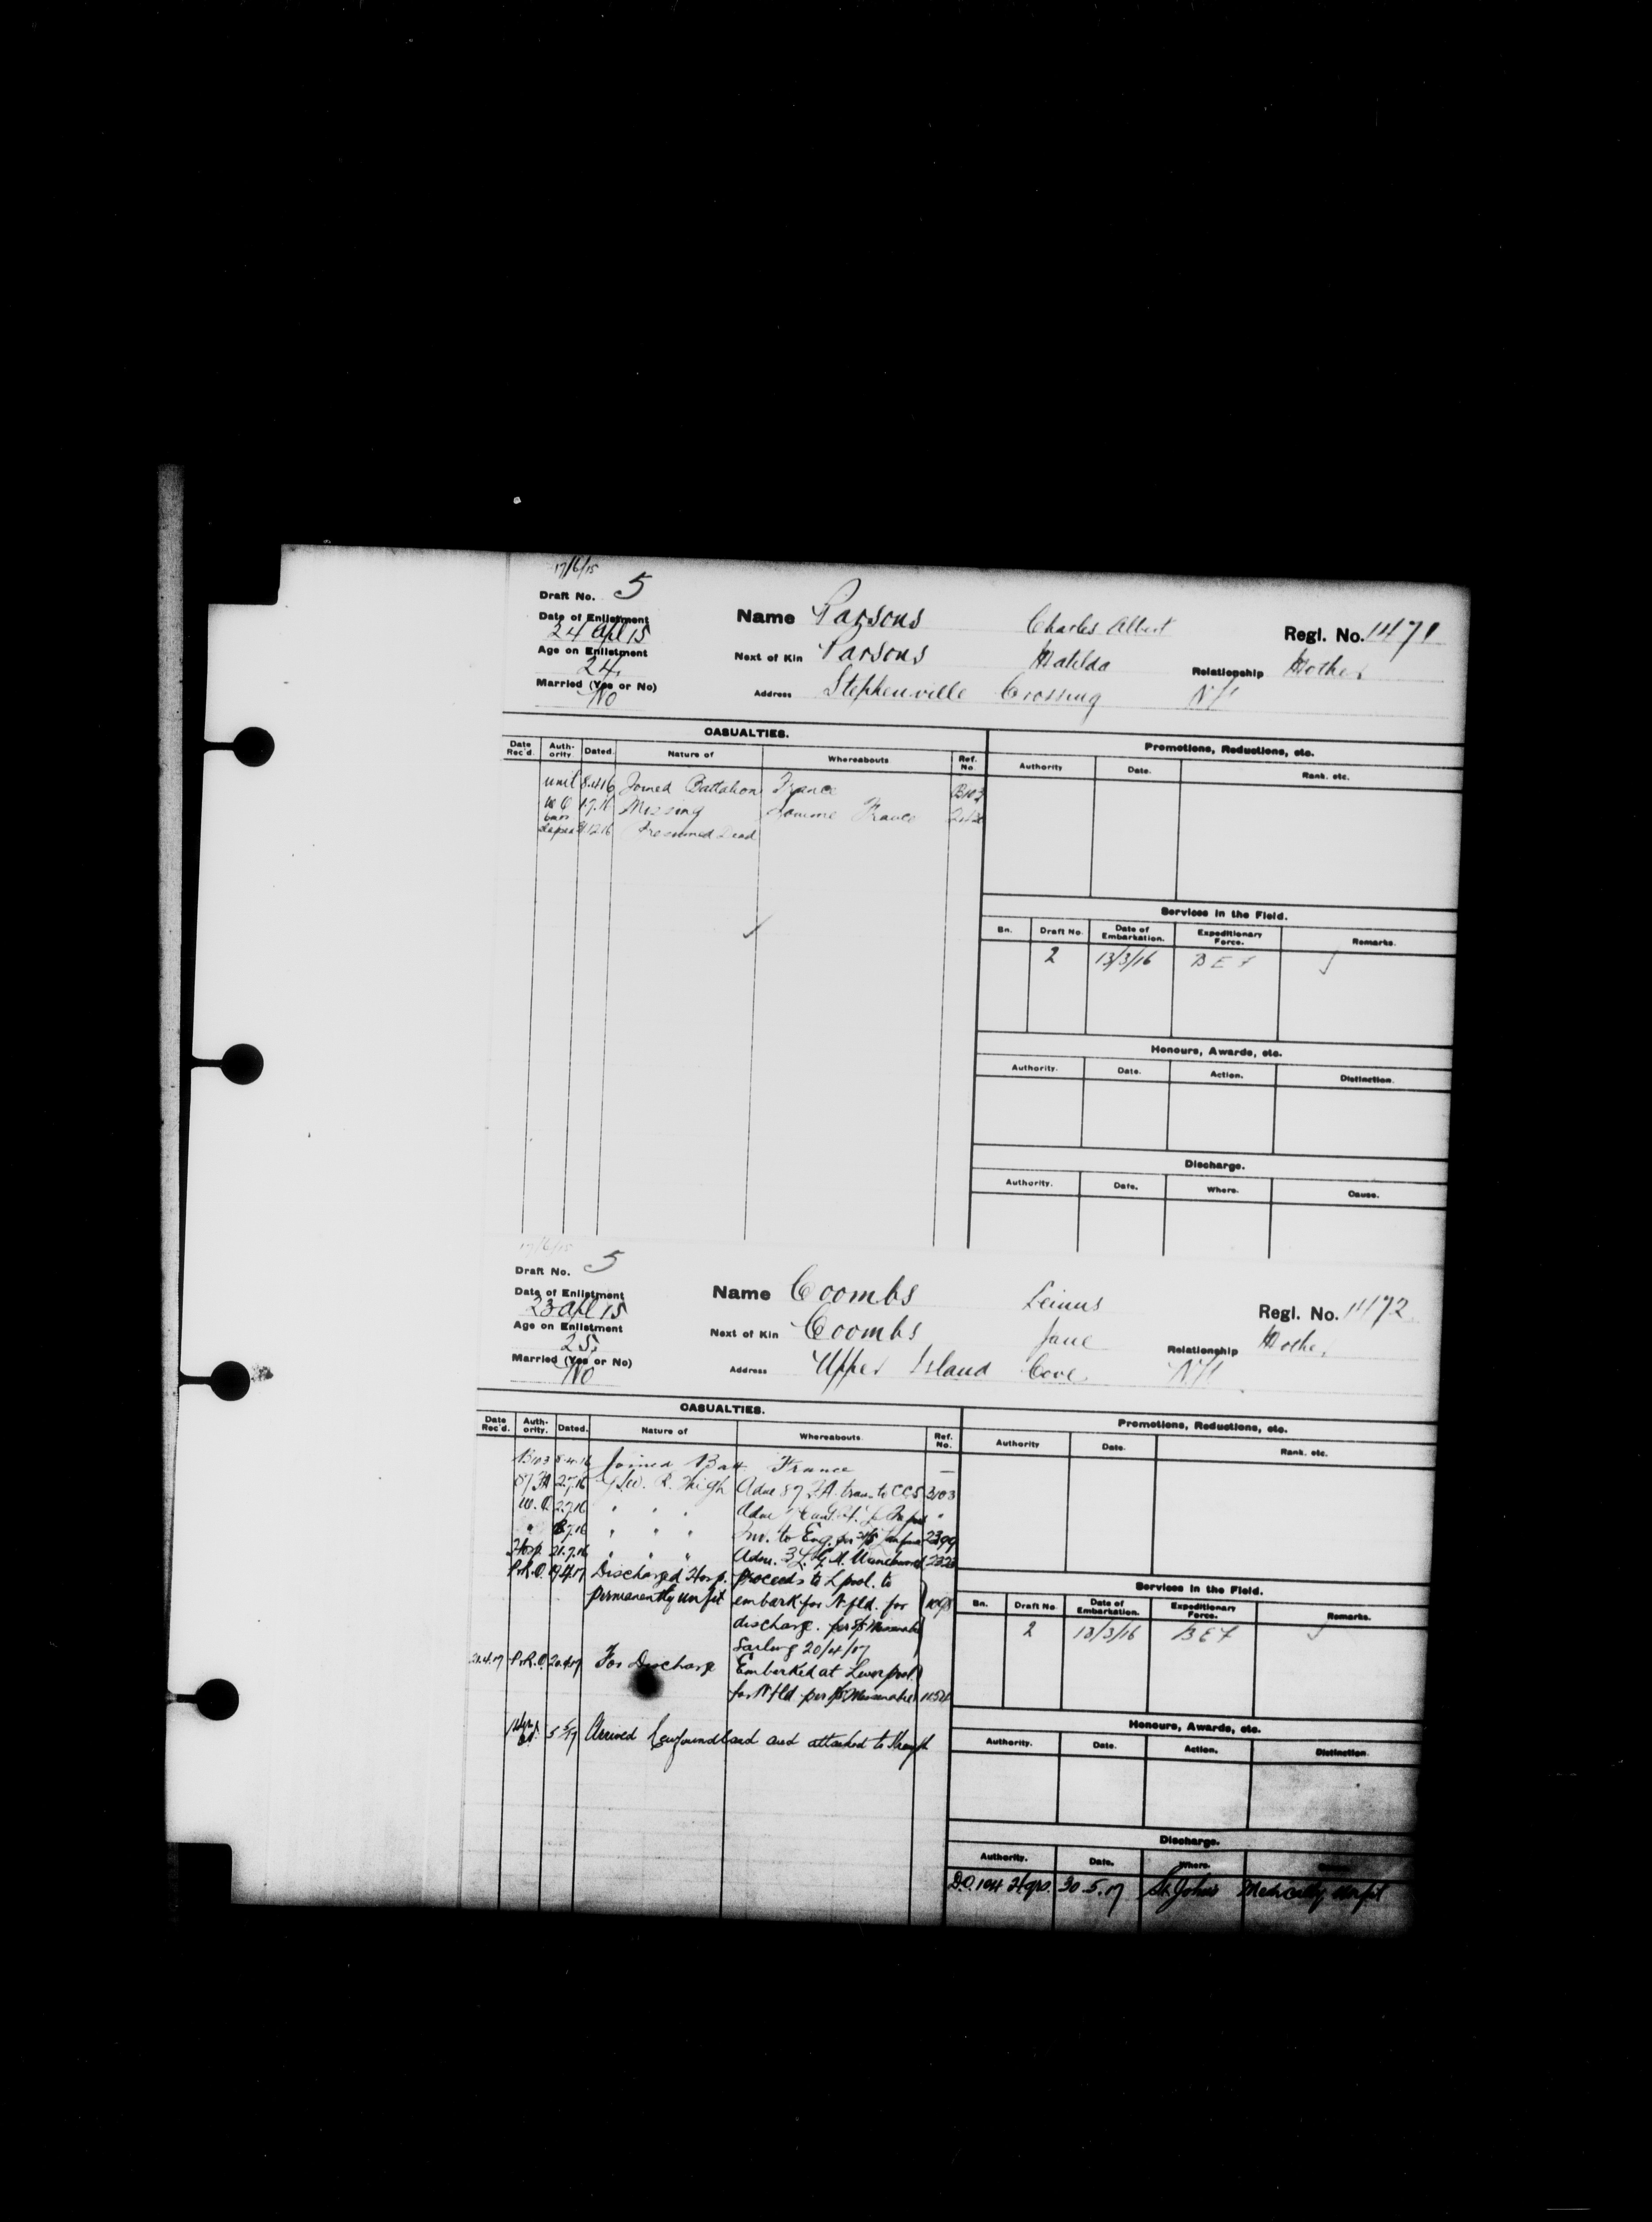 17/6/15
Draft No. 5
Date of Enlistment
24 Apl 15
Age on Enlistment
24.
Married (Yes or No)
No
Name Parsons Charles Albert Regl. No. 1471
Next of Kin Parsons Matilda Relationship Mother
Address Stephenville Crossing Nfl
CASUALTIES.
Date Rec'd. Auth-ority Dated. Nature of Whereabouts Ref. No.
Unit 8.4.16 Joined Battalion France B103
W O 1.7.16 Missing Somme France
31.12.16 Presumed Dead
Promotions, Reductions, etc.
Authority Date. Rank. etc.
Services in the Field.
Bn. Draft No. Date of Embarkation. Expeditionary Force. Remarks.
2 13/3/16 B E F
Honours, Awards, etc.
Authority. Date. Action. Distinction.
Discharge.
Authority. Date. Where. Cause.
17/6/15
Draft No. 5
Date of Enlistment
23 Apl 15
Age on Enlistment
25.
Married (Yes or No)
No
Name Coombs Leinus Regl. No. 1472
Next of Kin Coombs Jane Relationship Mother
Address Upper Island Cove Nfl
CASUALTIES.
Date Rec'd. Auth-ority. Dated. Nature of Whereabouts Ref. No.
B103 8.4.16 Joined Batt France —
87 FA 2.7.16 R. Thigh Adm 87 FA. trans to CCS 3103
W. O. 2.7.16 " " " Adm "
" .7.16 " " " Inv. to Eng. per 2399
Hosp. 21.7.16 " " " Adm. 3 L. G. H. Wandsworth
P.&R.O. Discharged Hosp. proceeds to Lpool. to
permanently unfit embark for Nfld. for
discharge. per
Sailing 20/4/17
21.4.17 P.&R.O. 20.4.17 For Discharge Embarked at Liverpool
for Nfld. per
Arrived Newfoundland and attached to strength
Promotions, Reductions, etc.
Authority Date. Rank. etc.
Services in the Field.
Bn. Draft No. Date of Embarkation. Expeditionary Force. Remarks.
2 13/3/16 B E F
Honours, Awards, etc.
Authority. Date. Action. Distinction.
Discharge.
Authority. Date. Where.
D.O. 194 Hqrs. 30.5.17 St. John's Medically Unfit